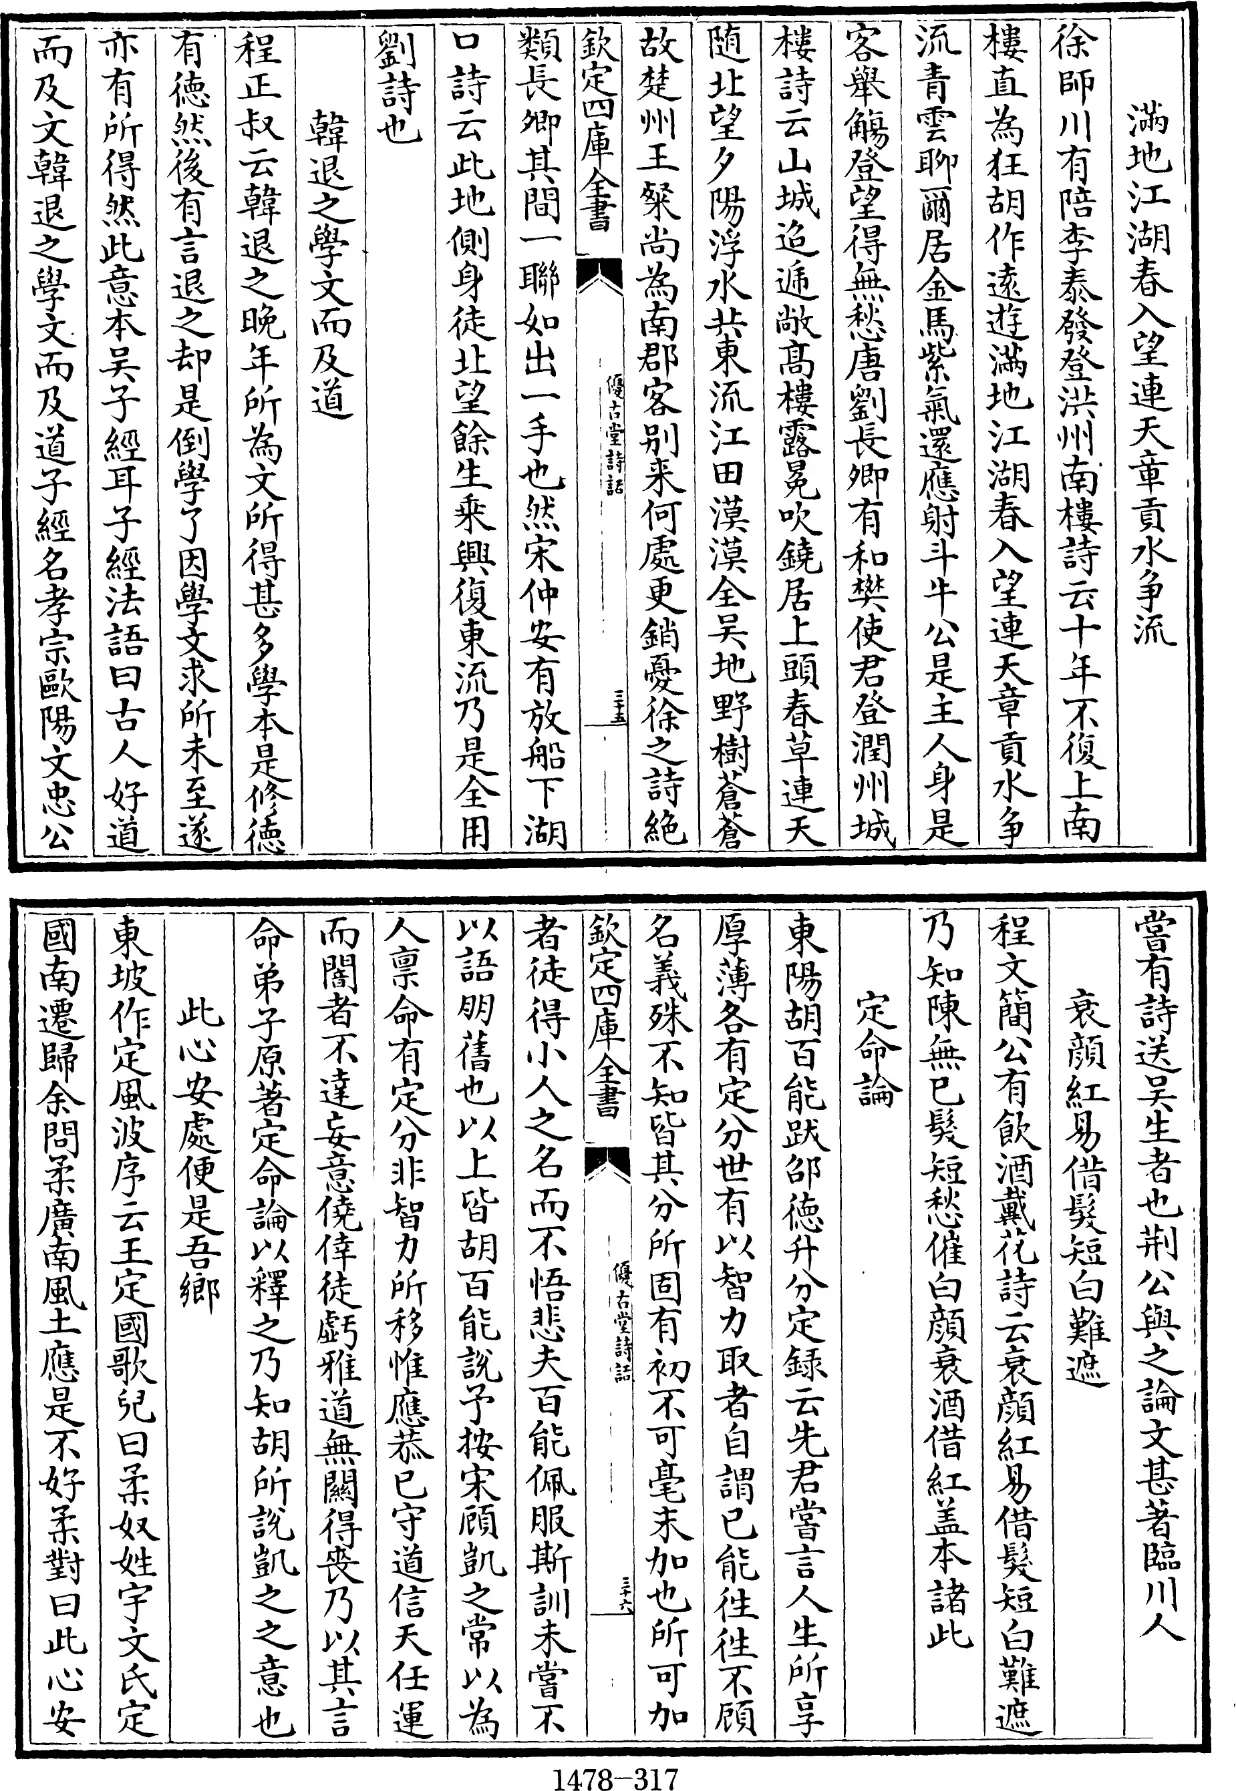 滿地江湖春入望連天章貢水争流
徐師川有陪李泰發登洪州南樓詩云十年不復上南
樓直為狂胡作逺遊滿地江湖春入望連天章貢水争
流青雲聊爾居金馬紫氣還應射斗牛公是主人身是
客舉觴登望得無愁唐劉長卿有和樊使君登潤州城
樓詩云山城迢遞敞高樓露冕吹鐃居上頭春草連天
随北望夕陽浮水共東流江田漠漠全吴地野樹蒼蒼
故楚州王粲尚為南郡客别来何處更銷憂徐之詩絶
欽定四庫全書
優古堂詩話
三十五
類長卿其間一聯如出一手也然宋仲安有放船下湖
口詩云此地側身徒北望餘生乘興復東流乃是全用
劉詩也
韓退之學文而及道
程正叔云韓退之晩年所為文所得甚多學本是修德
有徳然後有言退之却是倒學了因學文求所未至遂
亦有所得然此意本吴子經耳子經法語曰古人好道
而及文韓退之學文而及道子經名孝宗歐陽文忠公
嘗有詩送吴生者也荆公與之論文甚著臨川人
衰顔紅易借髮短白難遮
程文簡公有飲酒戴花詩云衰顔紅易借髮短白難遮
乃知陳無已髮短愁催白顔衰酒借紅盖本諸此
定命論
東陽胡百能跋邵德升分定録云先君嘗言人生所享
厚薄各有定分世有以智力取者自謂已能往往不顧
名義殊不知皆其分所固有初不可毫末加也所可加
欽定四庫全書
優古堂詩話
三十六
者徒得小人之名而不悟悲夫百能佩服斯訓未嘗不
以語朋舊也以上皆胡百能說予按宋顧凱之常以為
人禀命有定分非智力所移惟應恭已守道信天任運
而闇者不達妄意僥倖徒虧雅道無關得喪乃以其言
命弟子原著定命論以釋之乃知胡所說凱之之意也
此心安處便是吾鄉
東坡作定風波序云王定國歌兒曰柔奴姓宇文氏定
國南遷歸余問柔廣南風土應是不好柔對曰此心安
1478-317